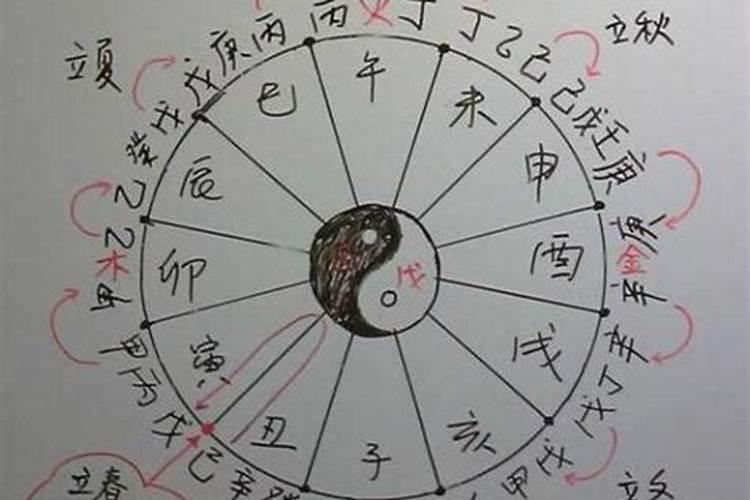 立夏
立秋
戊庚丙
丙火丁
丁乙己
己戊壬庚
戊
癸
乙
乙
木
甲
甲丙戊
己辛癸
庚
金
辛
辛
丁
戊
戊
甲
巳
午
未
申
酉
戌
亥
子
丑
寅
卯
辰
戊
立春
立冬